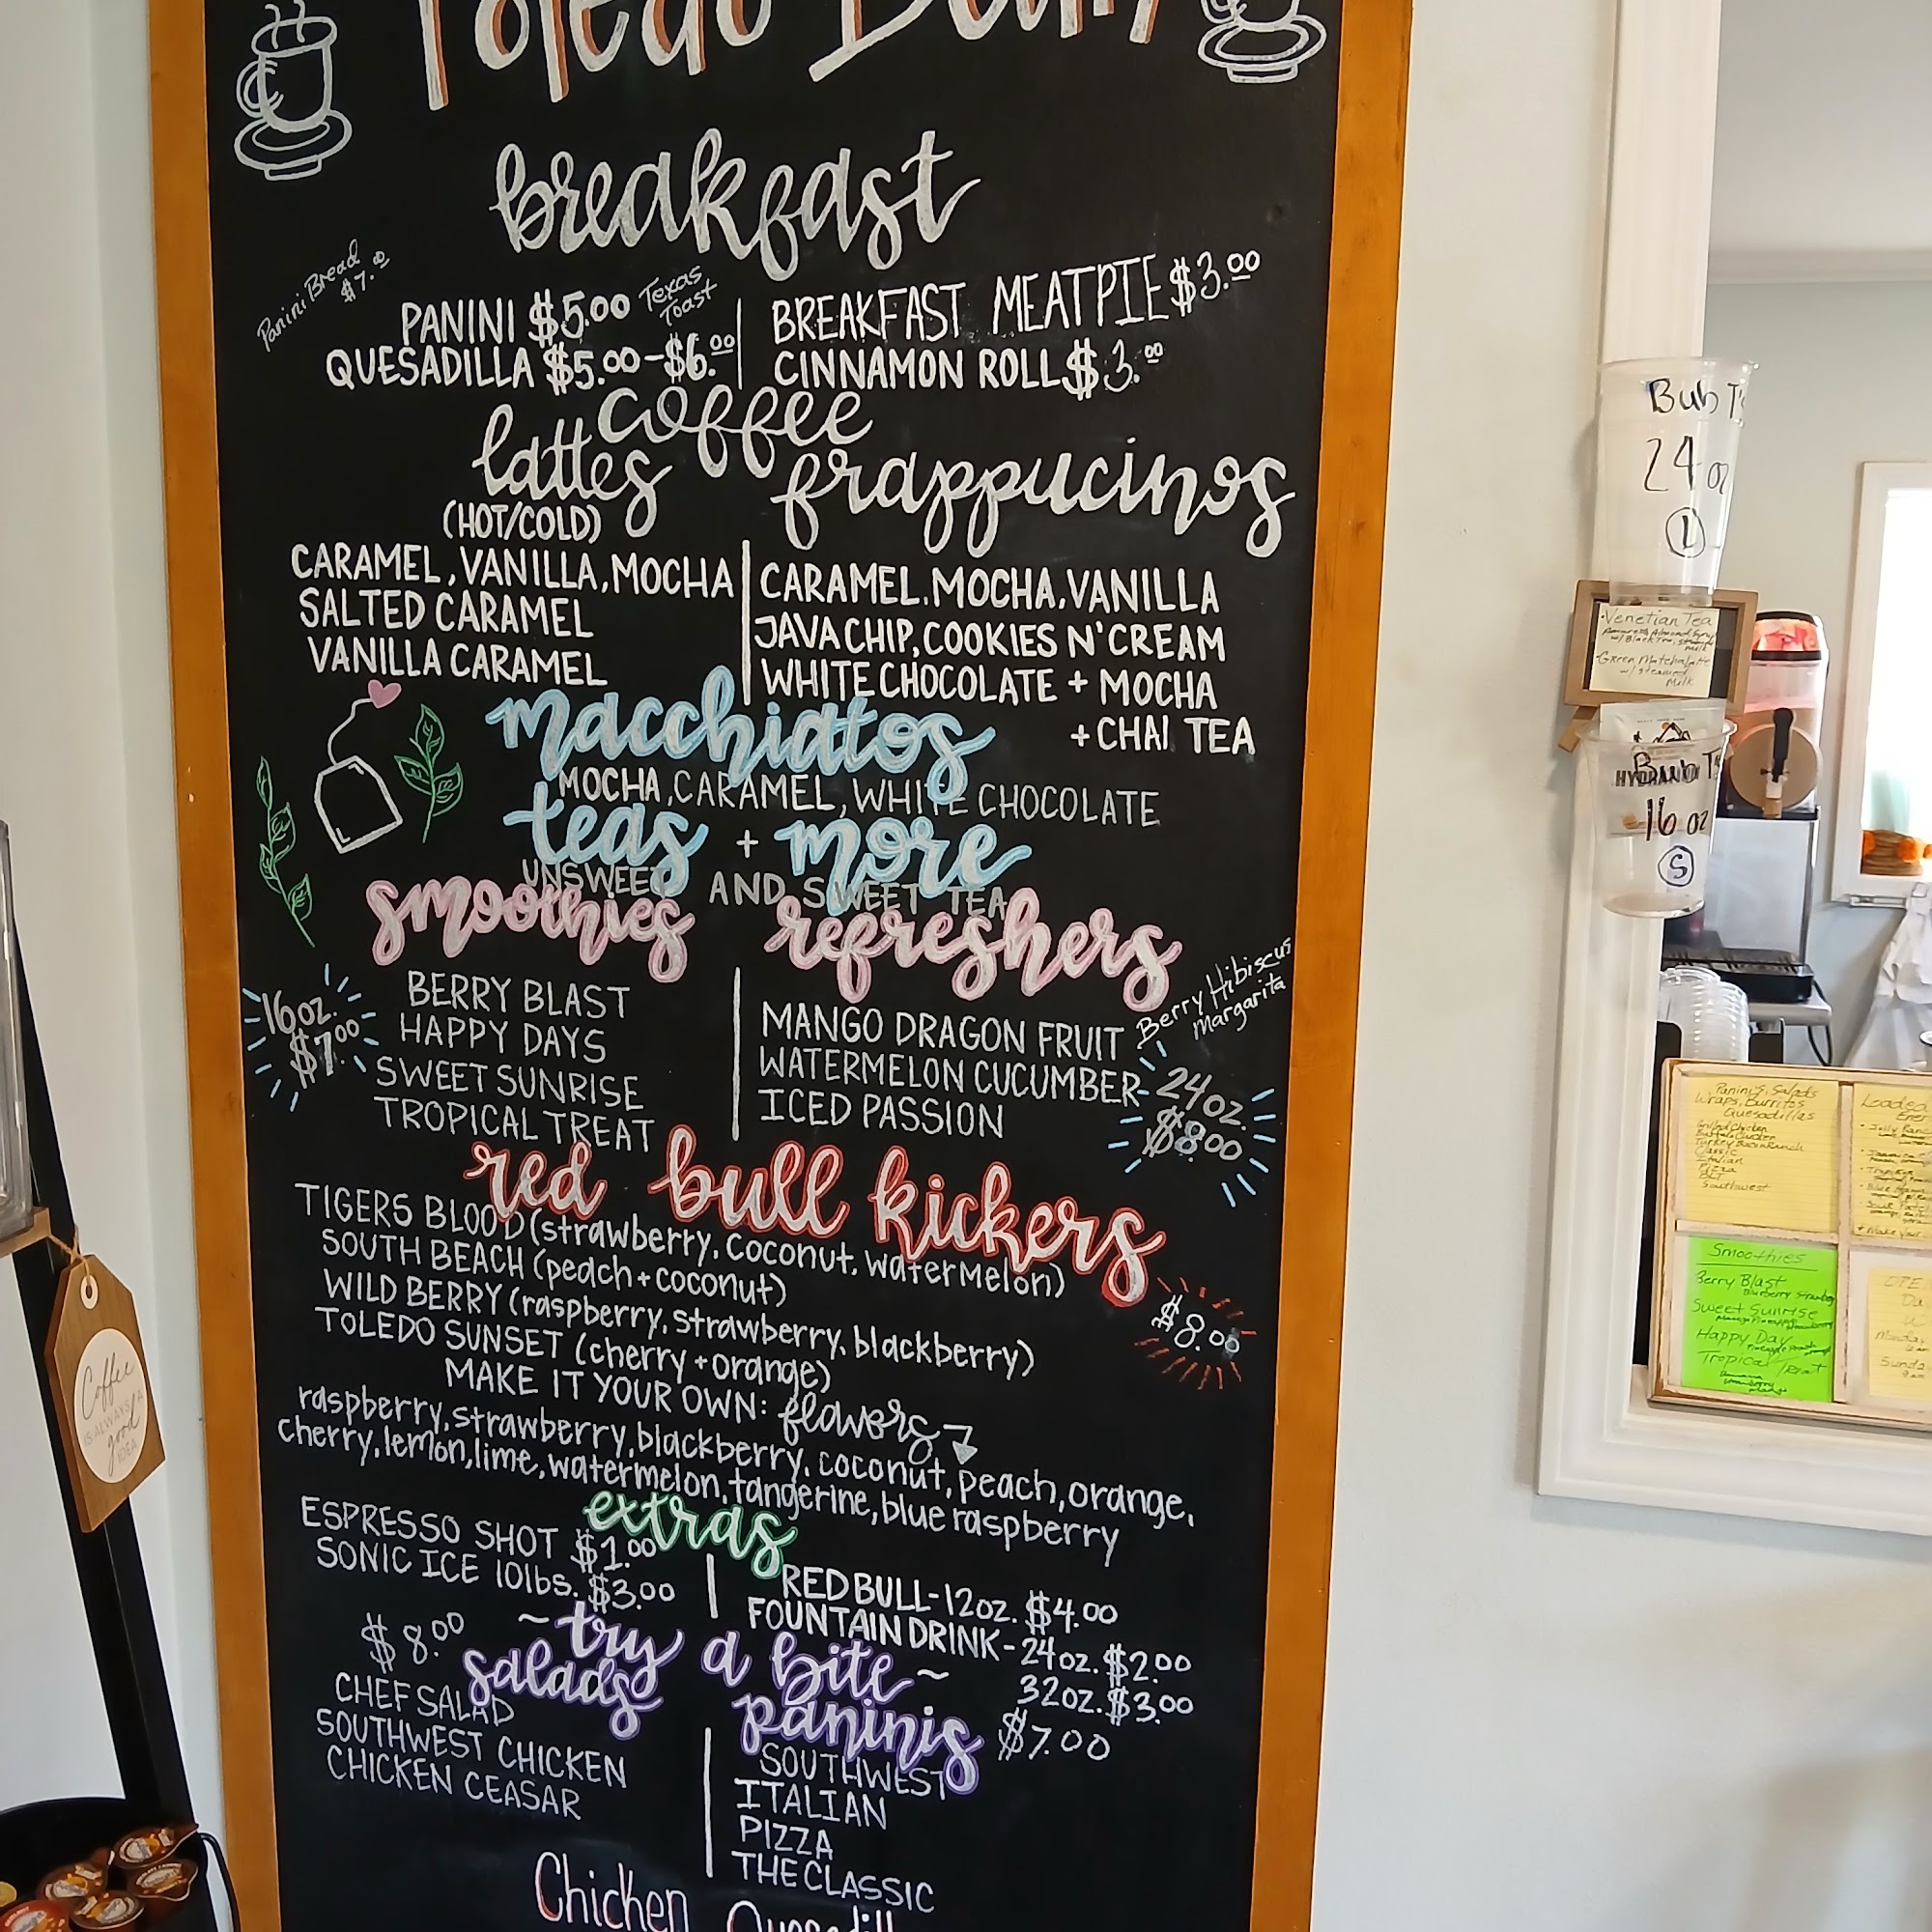 Toledo Bean
breakfast
Panini Bread
$7.00
PANINI $5.00 Texas Toast
QUESADILLA $5.00-$6.00
BREAKFAST MEATPIE $3.00
CINNAMON ROLL $3.00
coffee
lattes
(HOT/COLD)
CARAMEL, VANILLA, MOCHA
SALTED CARAMEL
VANILLA CARAMEL
frappucinos
CARAMEL, MOCHA, VANILLA
JAVA CHIP, COOKIES N' CREAM
WHITE CHOCOLATE + MOCHA
+ CHAI TEA
macchiatos
MOCHA, CARAMEL, WHITE CHOCOLATE
teas + more
UNSWEET AND SWEET TEA
smoothies
16oz.
$7.00
BERRY BLAST
HAPPY DAYS
SWEET SUNRISE
TROPICAL TREAT
refreshers
Berry Hibiscus
Margarita
MANGO DRAGON FRUIT
WATERMELON CUCUMBER
ICED PASSION
24oz.
$8.00
red bull kickers
TIGERS BLOOD (strawberry, coconut, watermelon)
SOUTH BEACH (peach + coconut)
WILD BERRY (raspberry, strawberry, blackberry)
TOLEDO SUNSET (cherry + orange)
$8.00
MAKE IT YOUR OWN: flavors
raspberry, strawberry, blackberry, coconut, peach, orange,
cherry, lemon, lime, watermelon, tangerine, blue raspberry
extras
ESPRESSO SHOT $1.00
SONIC ICE 10lbs. $3.00
RED BULL-12oz. $4.00
FOUNTAIN DRINK-24oz. $2.00
32oz. $3.00
~try a bite~
$8.00
salads
CHEF SALAD
SOUTHWEST CHICKEN
CHICKEN CEASAR
paninis $7.00
SOUTHWEST
ITALIAN
PIZZA
THE CLASSIC
Chicken
Coffee
IS ALWAYS A
good
IDEA
Bub T's
24 oz
L
Venetian Tea
Green Matcha Latte
w/ steamed
Milk
Bub T's
16 oz
S
Panini's, Salads
Wraps, Burritos
Quesadillas
Grilled Chicken
Buffalo Chicken
Turkey Bacon Ranch
Classic
Italian
Pizza
BLT
Southwest
Loaded
Smoothies
Berry Blast
Sweet Sunrise
Happy Day
Tropical Treat